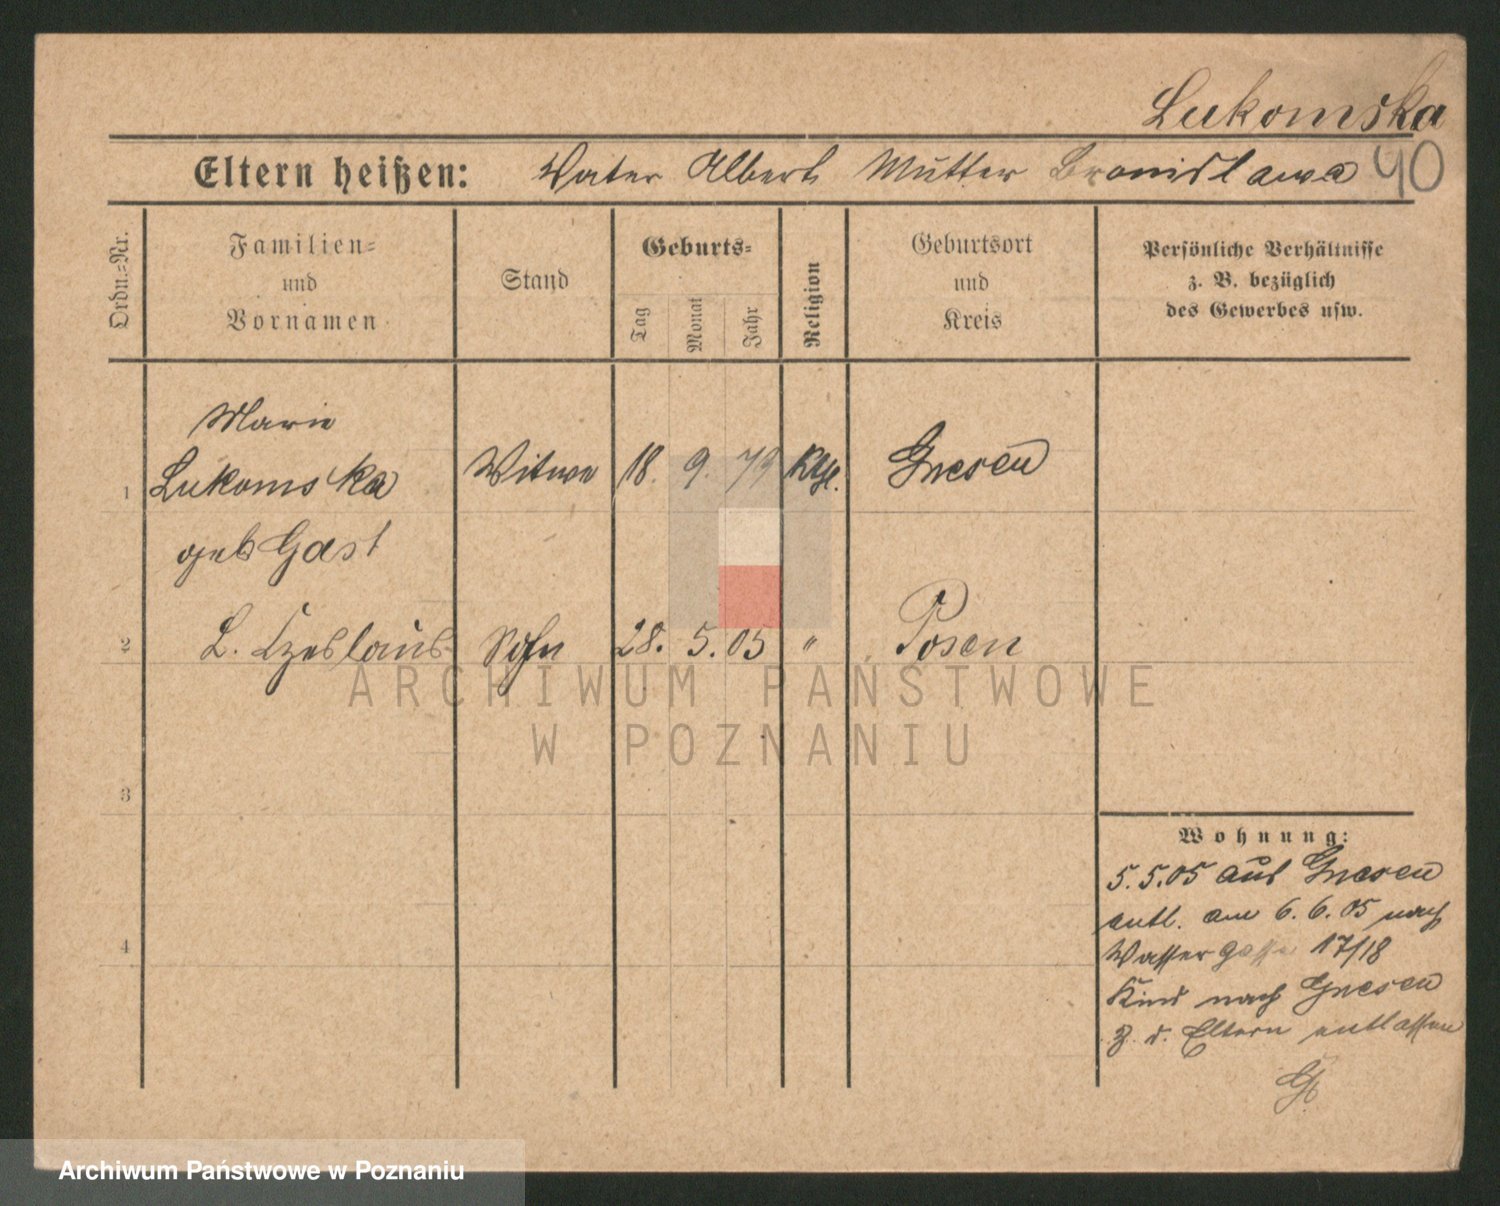 Lukomska
Eltern heißen: Vater Albert Mutter Bronislawa 40
Ordn.=Nr.
Familien=
und
Vornamen
Stand
Geburts=
Tag
Monat
Jahr
Religion
Geburtsort
und
Kreis
Persönliche Verhältnisse
z. B. bezüglich
des Gewerbes usw.
Marie
1 Lukomska Witwe 18. 9. 79 Kth. Gnesen
geb Gast
2 L. Czeslaus Sohn 28. 5. 05 " Posen
ARCHIWUM PAŃSTWOWE
W POZNANIU
3
Wohnung:
5.5.05 aus Gnesen
entl. am 6.6.05 nach
4
Wassergasse 17/18
Kind nach Gnesen
z. d. Eltern entlassen
Archiwum Państwowe w Poznaniu